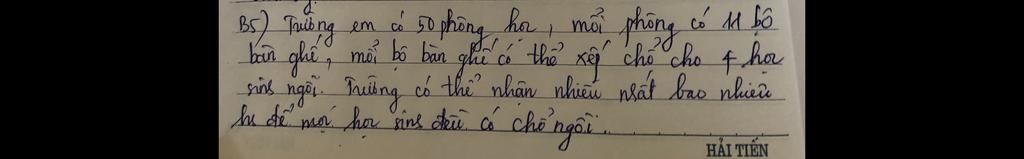 B5) Trường em có 50 phòng học, mỗi phòng có 11 bộ
bàn ghế, mỗi bộ bàn ghế có thể xếp chỗ cho 4 học
sinh ngồi. Trường có thể nhận nhiều nhất bao nhiêu
hs để mọi học sinh đều có chỗ ngồi.
HẢI TIẾN